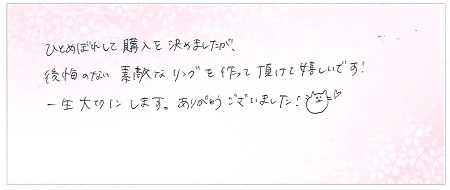 ひとめぼれして購入を決めましたが、
後悔のない素敵なリングを作って頂けて嬉しいです!
一生大切にします。ありがとうございました!